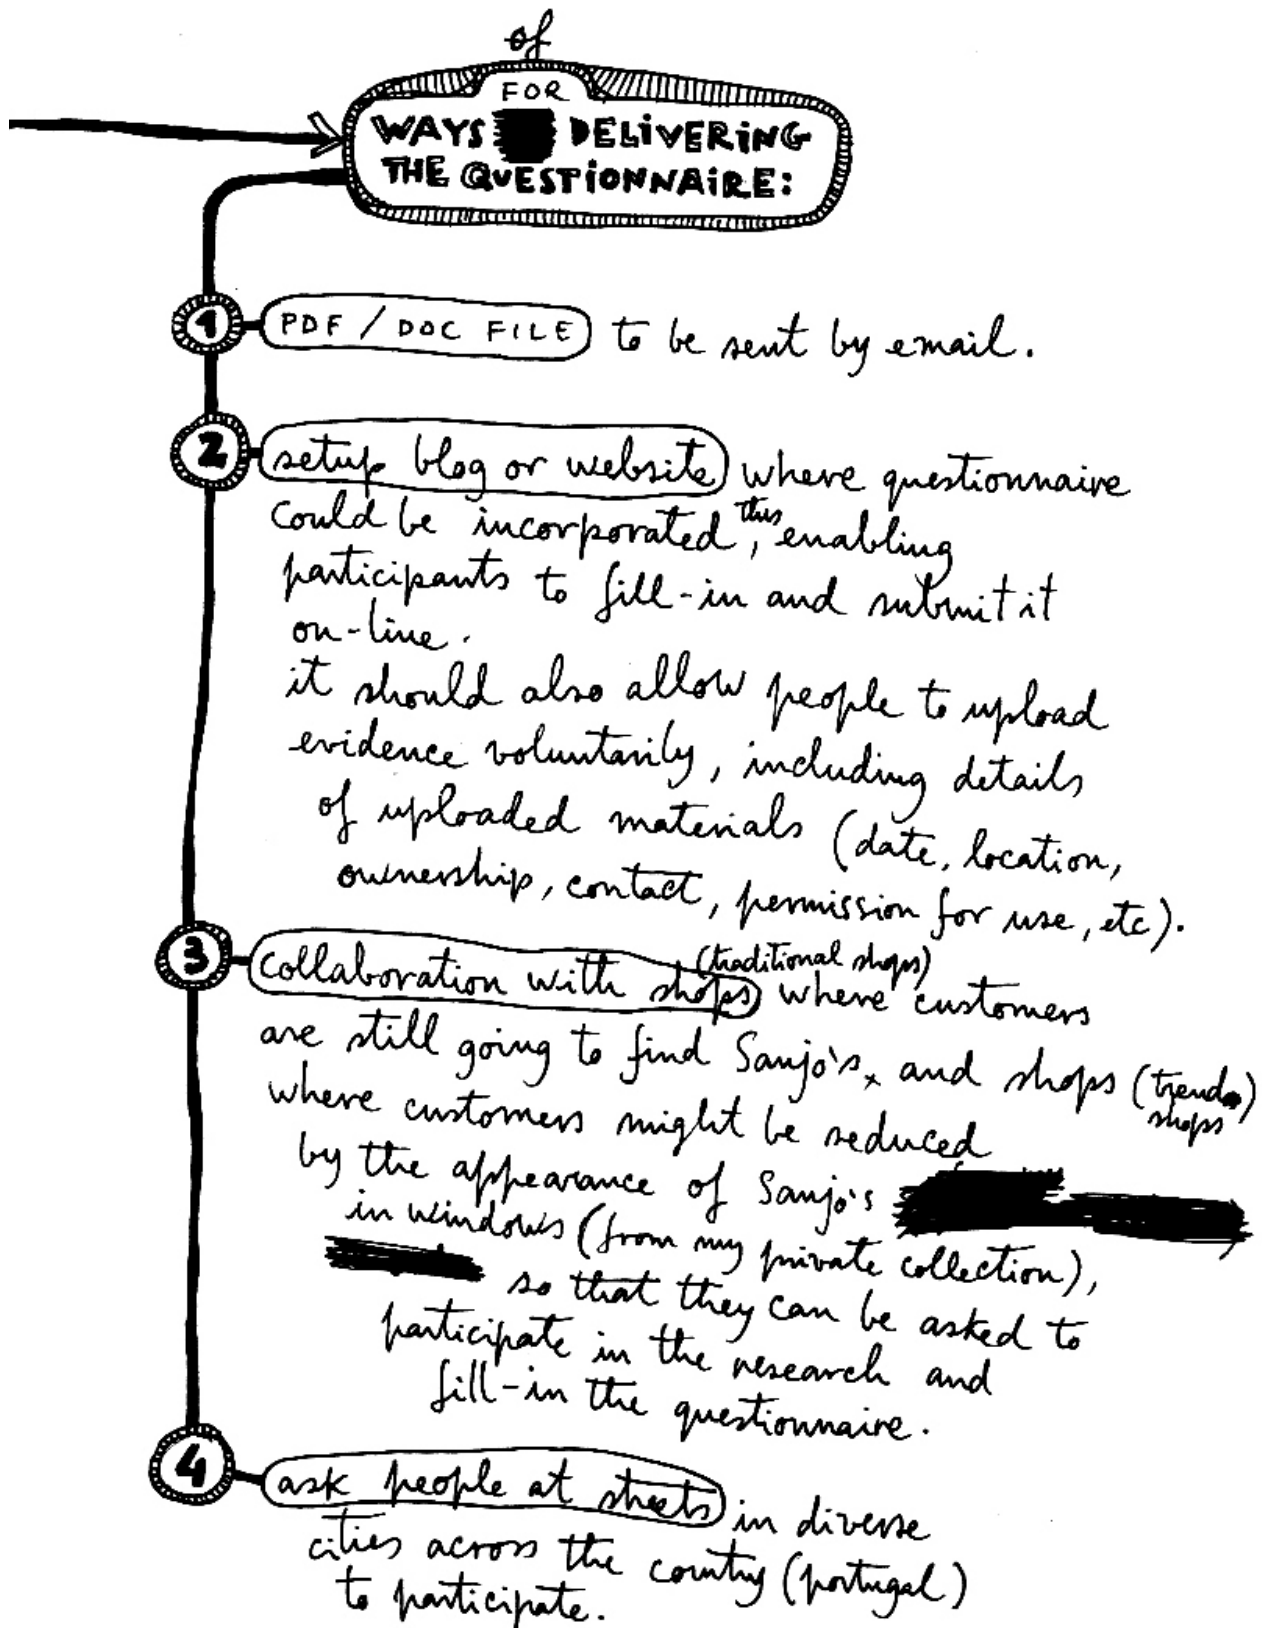 of
FOR
WAYS DELIVERING
THE QUESTIONNAIRE:
1 PDF / DOC FILE to be sent by email.
2 setup blog or website where questionnaire
could be incorporated, thus enabling
participants to fill-in and submit it
on-line.
it should also allow people to upload
evidence voluntarily, including details
of uploaded materials (date, location,
ownership, contact, permission for use, etc).
(traditional shops)
3 collaboration with shops where customers
are still going to find Sanjo's, and shops (trend
shops)
where customers might be seduced
by the appearance of Sanjo's
in windows (from my private collection),
so that they can be asked to
participate in the research and
fill-in the questionnaire.
4 ask people at streets in diverse
cities across the country (portugal)
to participate.